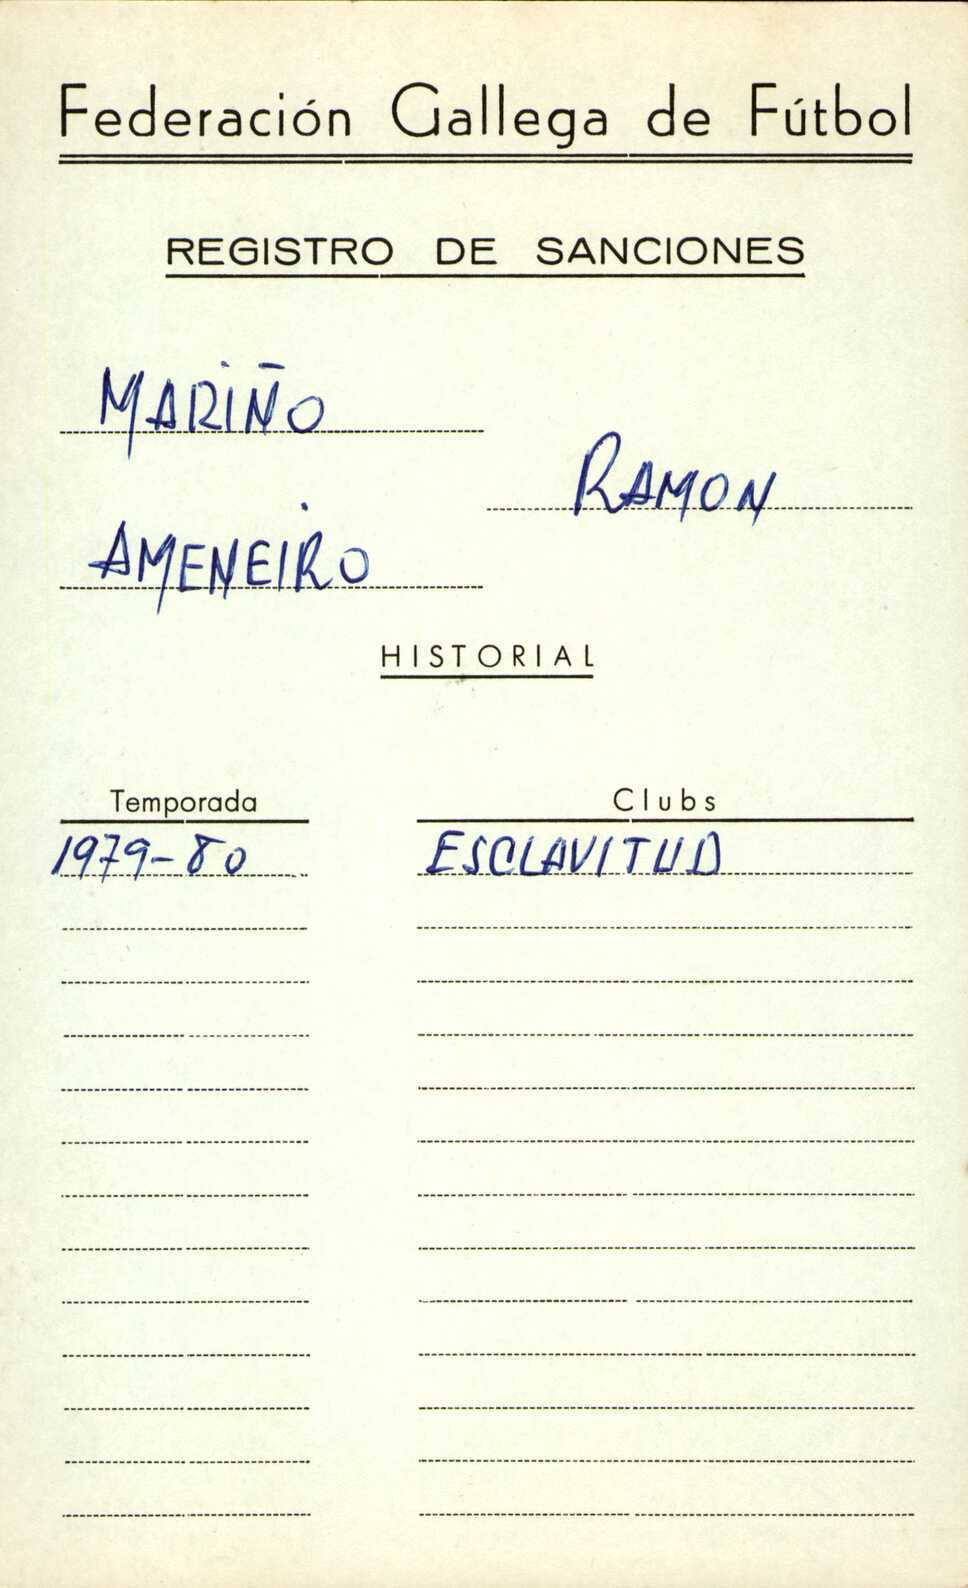 Federación Gallega de Fútbol
REGISTRO DE SANCIONES
MARIÑO
RAMON
AMENEIRO
HISTORIAL
Temporada Clubs
1979-80 ESCLAVITUD